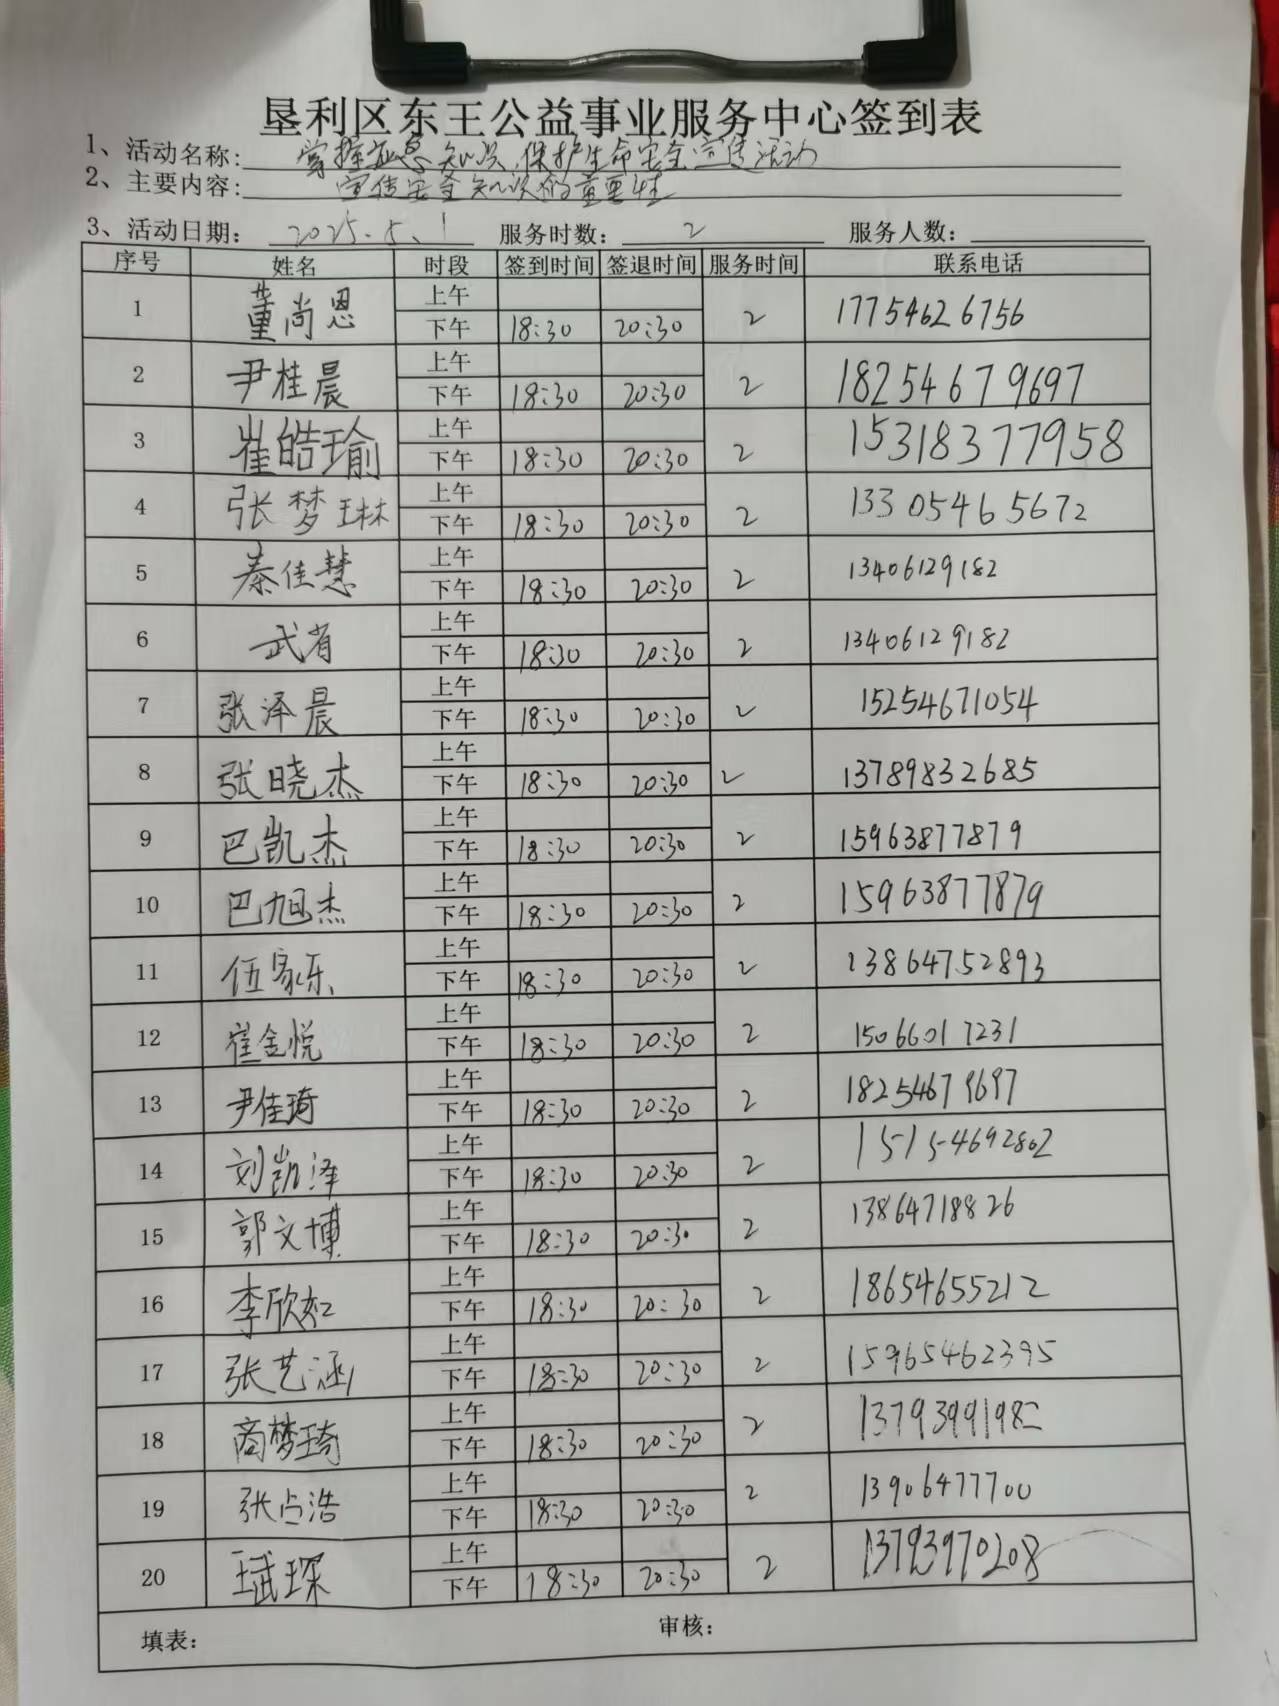 垦利区东王公益事业服务中心签到表
1、活动名称: 掌握应急知识,保护生命安全宣传活动
2、主要内容: 宣传安全知识的重要性
3、活动日期: 2025.5.1 服务时数: 2 服务人数:
序号 姓名 时段 签到时间 签退时间 服务时间 联系电话
1 董尚恩 上午 2 17754626756
下午 18:30 20:30
2 尹桂晨 上午 2 18254679697
下午 18:30 20:30
3 崔皓瑜 上午 2 15318377958
下午 18:30 20:30
4 张梦琳 上午 2 13305465672
下午 18:30 20:30
5 秦佳慧 上午 2 13406129182
下午 18:30 20:30
6 武肖 上午 2 13406129182
下午 18:30 20:30
7 张泽晨 上午 2 15254671054
下午 18:30 20:30
8 张晓杰 上午 2 13789832685
下午 18:30 20:30
9 巴凯杰 上午 2 15963877879
下午 18:30 20:30
10 巴旭杰 上午 2 15963877879
下午 18:30 20:30
11 伍家乐 上午 2 13864752893
下午 18:30 20:30
12 崔金悦 上午 2 15066017231
下午 18:30 20:30
13 尹佳琦 上午 2 18254679697
下午 18:30 20:30
14 刘凯泽 上午 2 15154692802
下午 18:30 20:30
15 郭文博 上午 2 13864718826
下午 18:30 20:30
16 李欣如 上午 2 18654655212
下午 18:30 20:30
17 张艺涵 上午 2 15965462395
下午 18:30 20:30
18 商梦琦 上午 2 13793991982
下午 18:30 20:30
19 张占浩 上午 2 13906477700
下午 18:30 20:30
20 上午 2 13793970208
下午 18:30 20:30
填表: 审核: